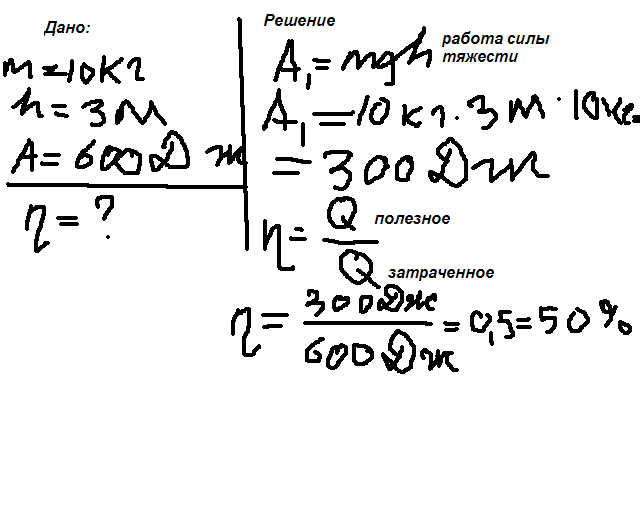 Дано:
m=10кг
h=3м
A=600Дж
η=?
Решение
A₁=mgh работа силы тяжести
A₁=10кг·3м·10
=300Дж
η=Q/Q
полезное
затраченное
η=300Дж/600Дж=0,5=50%